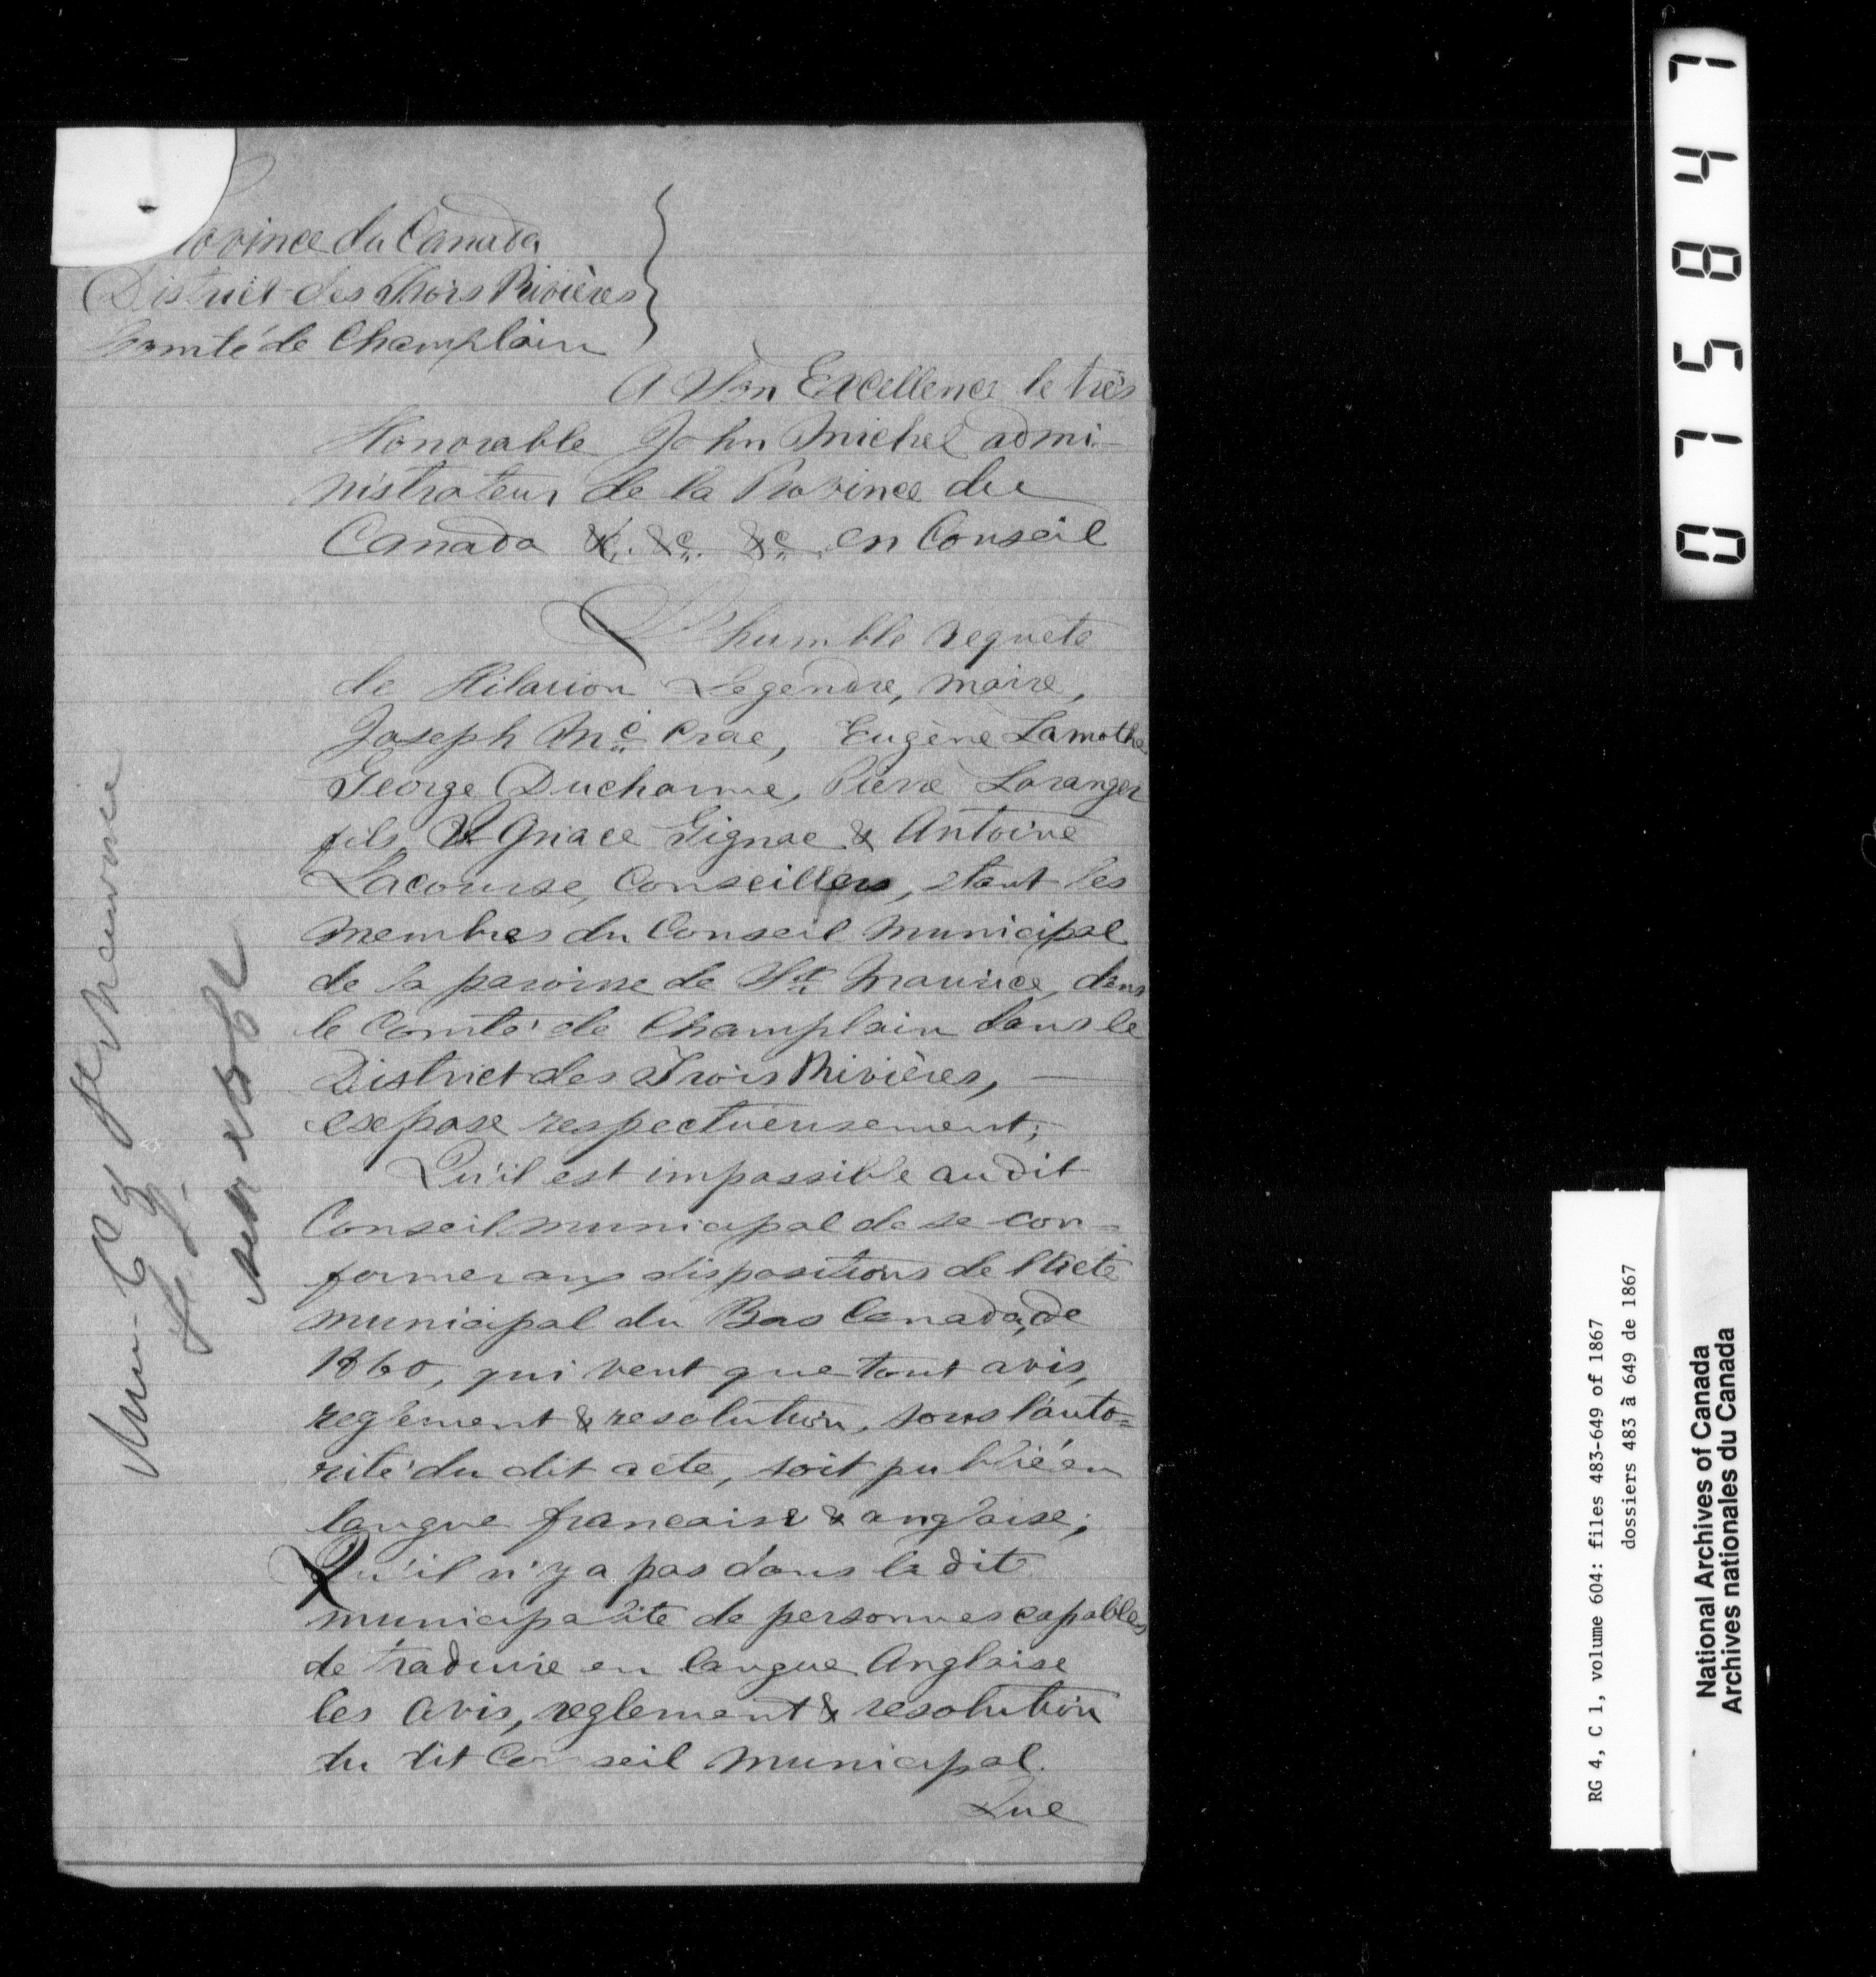 Province du Canada
District des Trois Rivières
Comté de Champlain
A Son Excellence le très
Honorable John Michel admi-
nistrateur de la Province du
Canada &c. &c. &c. en Conseil
L'humble requête
de Hilarion Legendre, maire,
Joseph Mc Crae, Eugène Lamothe
George Ducharme, Pierre Loranger
fils, Ignace Gignac & Antoine
Lacourse, Conseillers, étant les
membres du Conseil Municipal
de la paroisse de St. Maurice, dans
le Comté de Champlain dans le
District des Trois Rivières, —
expose respectueusement;
Qu'il est impossible au dit
Conseil municipal de se con=
former aux dispositions de l'Acte
municipal du Bas Canada, de
1860, qui veut que tout avis,
reglement & resolution, sous l'auto=
rité du dit acte, soit publié en
langue francaise & anglaise;
Qu'il n'y a pas dans la dite
municipalité de personnes capables
de traduire en langue Anglaise
les avis, reglement & resolution
du dit Conseil Municipal.
Que
Mun. Cy St Maurice
075847
RG 4, C 1, volume 604: files 483-649 of 1867
dossiers 483 à 649 de 1867
National Archives of Canada
Archives nationales du Canada